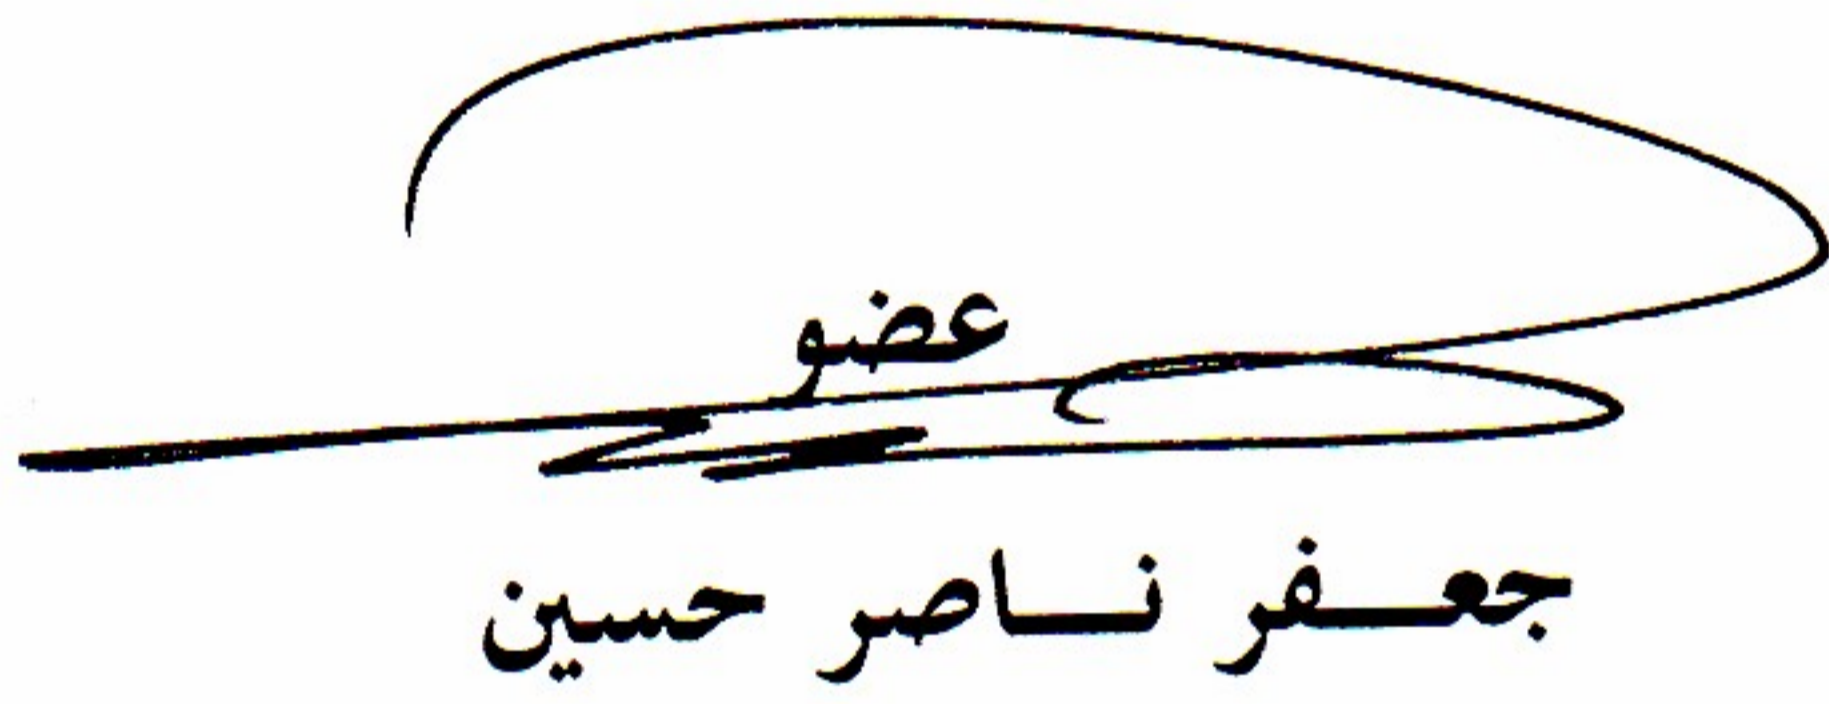 عضو
جعفر ناصر حسين